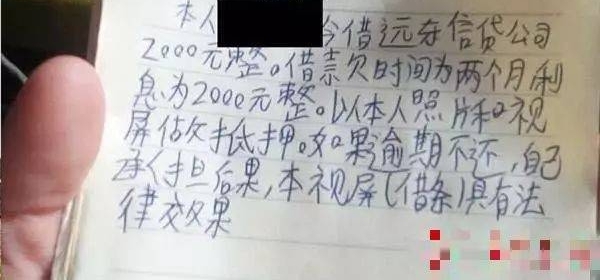 本人 今借远东信贷公司
2000元整。借款欠时间为两个月利
息为2000元整。以本人照片和视
屏做欠抵押。如果逾期不还,自己
承担后果,本视屏(借条)具有法
律效果